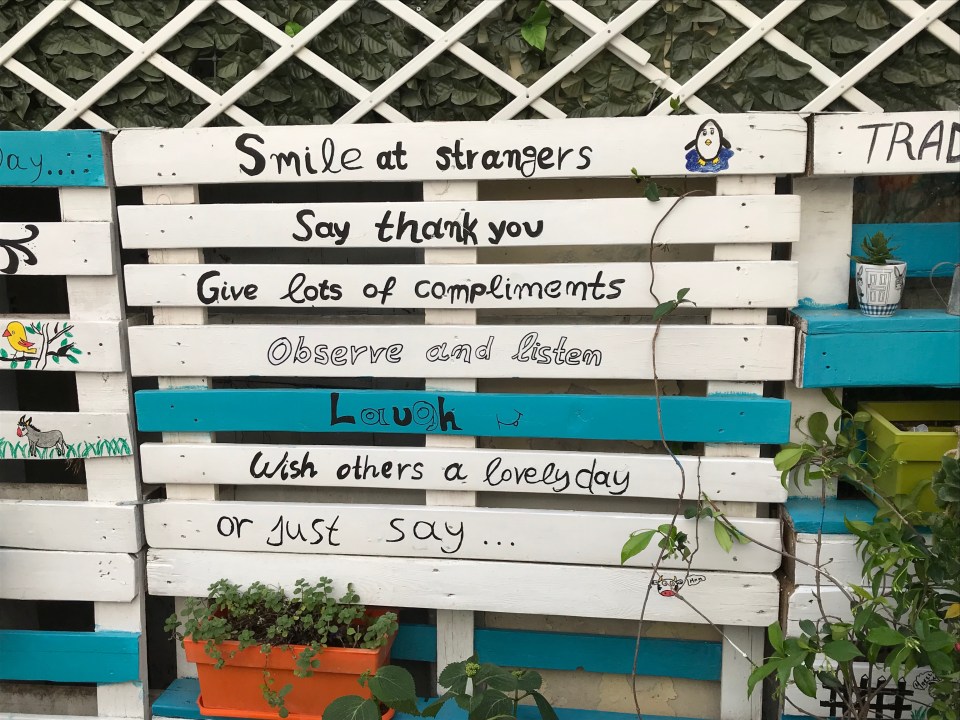 Day....
Smile at strangers
TRAD
Say thank you
Give lots of compliments
Observe and listen
Laugh
Wish others a lovely day
or just say ...